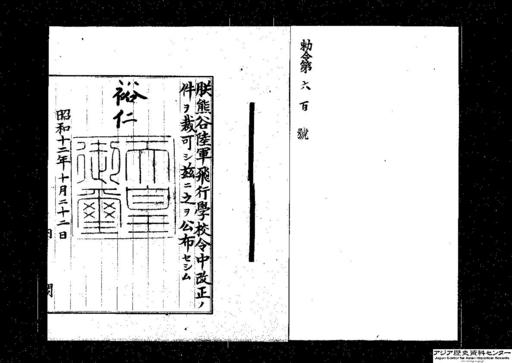 勅令第六百號
朕熊谷陸軍飛行學校令中改正ノ
件ヲ裁可シ茲ニ之ヲ公布セシム
裕仁
天皇御璽
昭和十二年十月二十二日
内閣
アジア歴史資料センター
Japan Center for Asian Historical Records